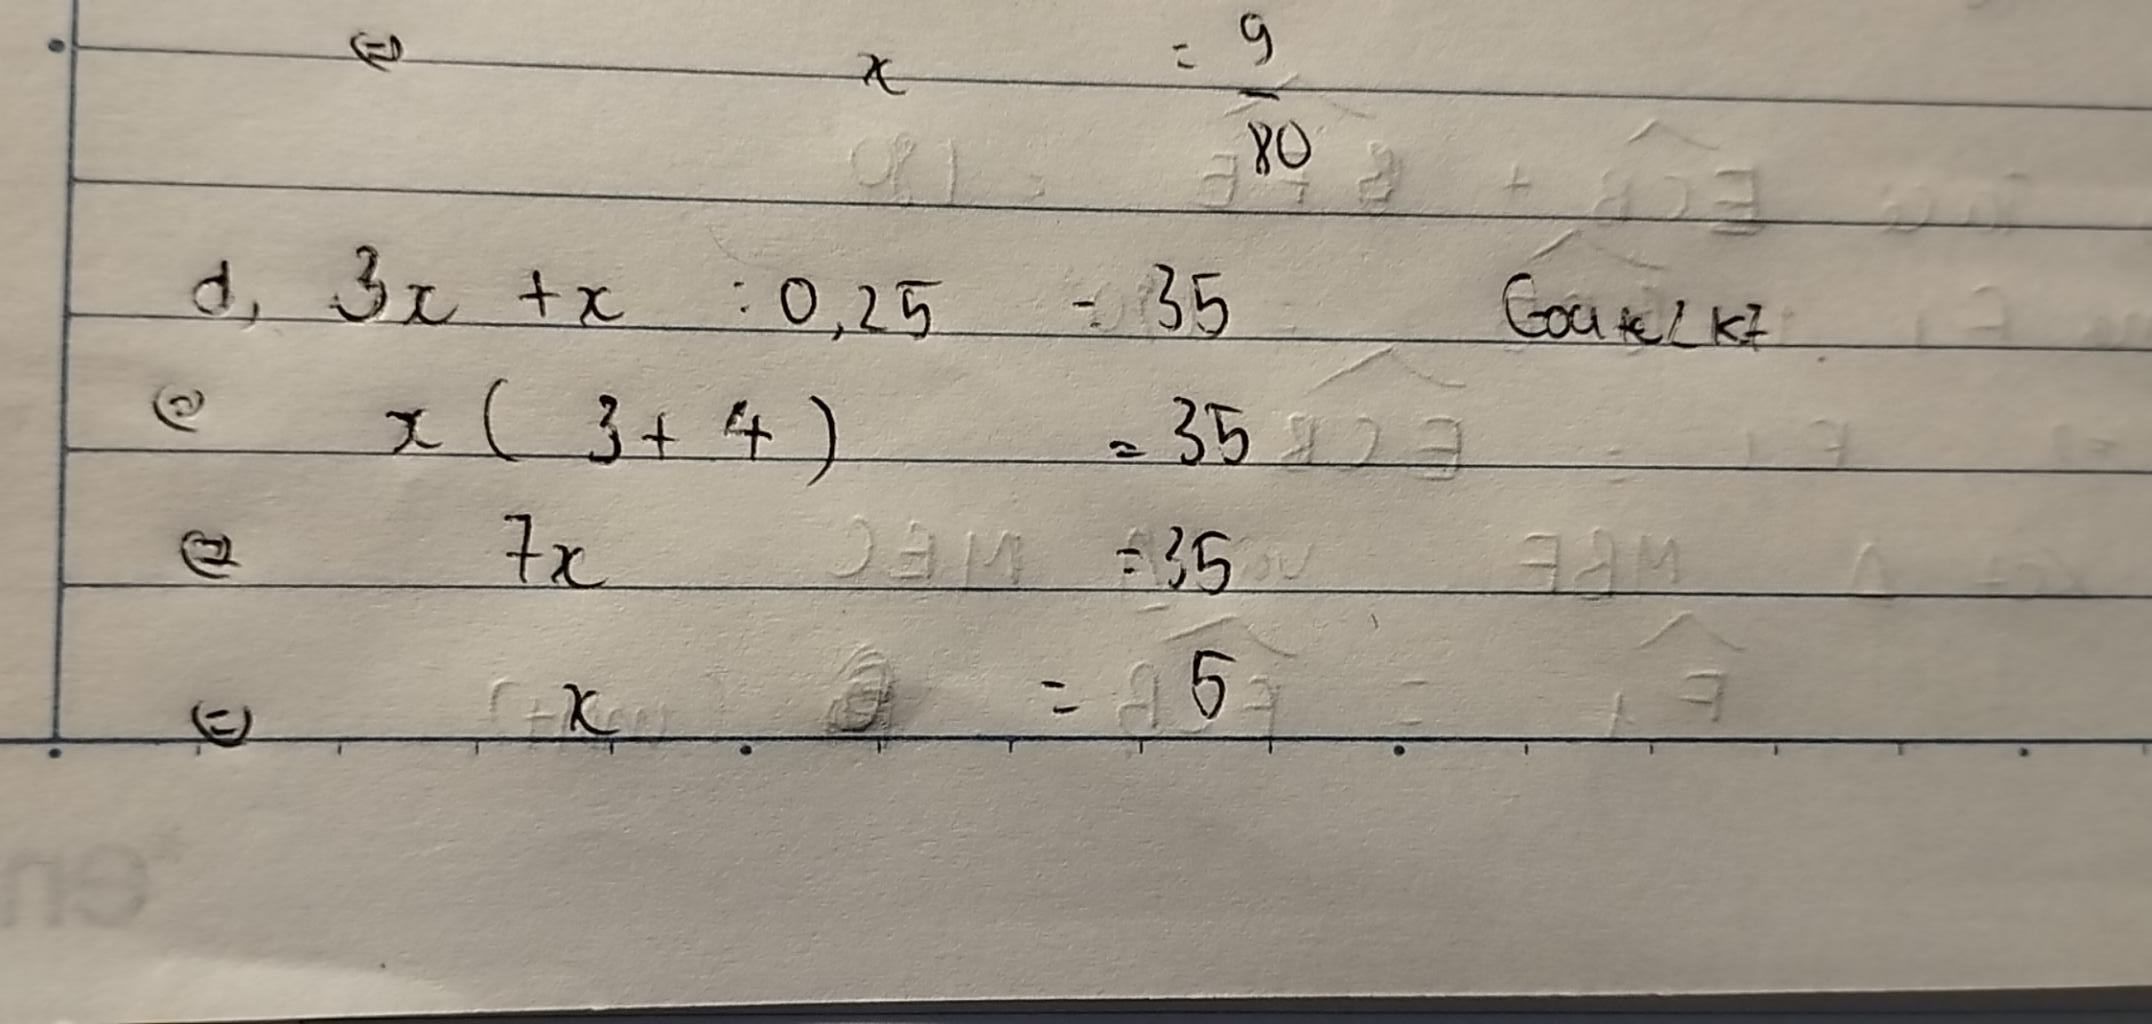 ⇔ x = 9/80
d, 3x + x : 0,25 = 35
⇔ x ( 3 + 4 ) = 35
⇔ 7x = 35
⇔ x = 5